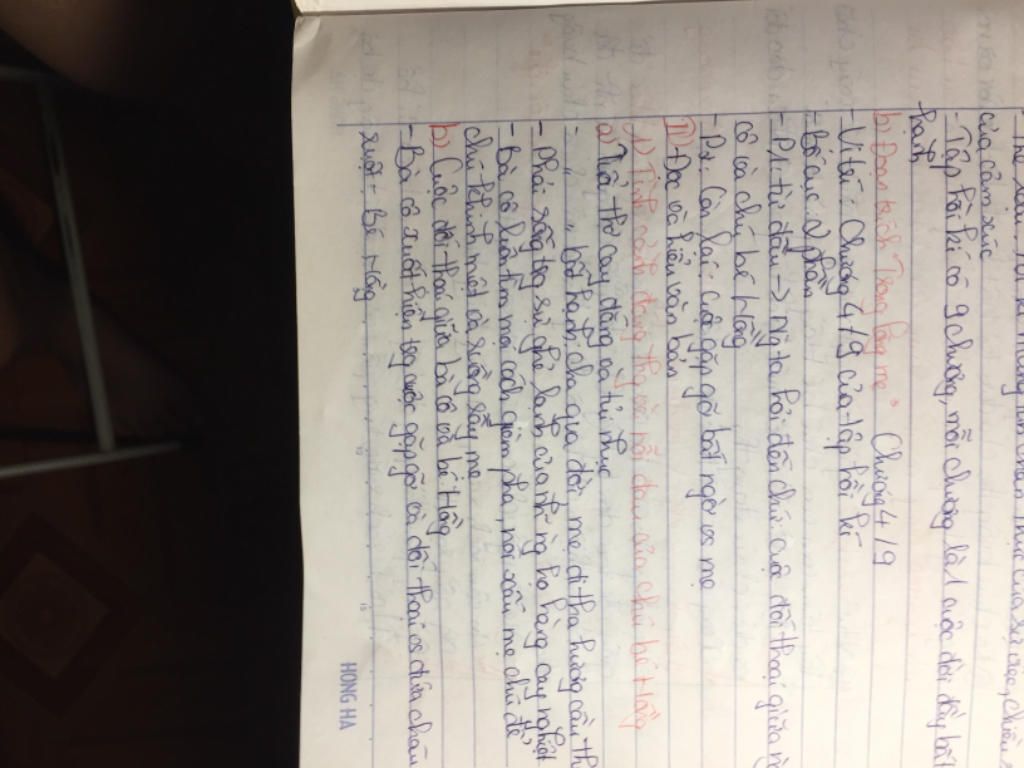 - Thể loại: Hồi kí
của cảm xúc
- Tập hồi kí có 9 chương, mỗi chương là 1 cuộc đời đầy bất
hạnh
b) Đoạn trích "Trong lòng mẹ" Chương 4/9
- Vị trí: Chương 4/9 của tập hồi kí
- Bố cục: 2 phần
- P1: từ đầu -> người ta hỏi đến chứ: cuộc đối thoại giữa
cô và chú bé Hồng
- P2: Còn lại: cuộc gặp gỡ bất ngờ vs mẹ
II) Đọc và hiểu văn bản
1) Tình cảnh đáng thương và nỗi đau của chú bé Hồng
a) Tuổi thơ cay đắng và tủi nhục
- " " bất hạnh: cha qua đời, mẹ đi tha hương cầu th
- Phải sống trong sự ghẻ lạnh của những họ hàng cay nghiệt
- Bà cô luôn tìm mọi cách gièm pha, nói xấu mẹ chú để
chú khinh miệt và ruồng rẫy mẹ
b) Cuộc đối thoại giữa bà cô và bé Hồng
- Bà cô xuất hiện trong cuộc gặp gỡ và đối thoại vs đứa cháu
ruột - Bé Hồng
HONG HA